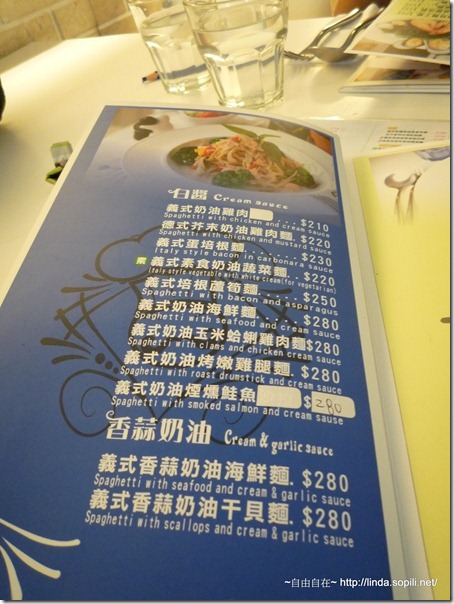 白醬 Cream sauce
義式奶油雞肉....$210
Spaghetti with chicken and cream sauce
德式芥末奶油雞肉麵.$220
Spaghetti with chicken and mustard sauce
義式蛋培根麵........$230
Italy style bacon in carbonara sauce
素 義式素食奶油蔬菜麵..$220
Italy style vegetable with white cream(for vegetarian)
義式培根蘆筍麵....$250
Spaghetti with bacon and asparagus
義式奶油海鮮麵....$280
Spaghetti with seafood and cream sauce
義式奶油玉米蛤蜊雞肉麵$280
Spaghetti with clams and chicken cream sauce
義式奶油烤嫩雞腿麵.$280
Spaghetti with roast drumstick and cream sauce
義式奶油煙燻鮭魚 $280
Spaghetti with smoked salmon and cream sauce
香蒜奶油 Cream & garlic sauce
義式香蒜奶油海鮮麵.$280
Spaghetti with seafood and cream & garlic sauce
義式香蒜奶油干貝麵.$280
Spaghetti with scallops and cream & garlic sauce
~自由自在~ http://linda.sopili.net/